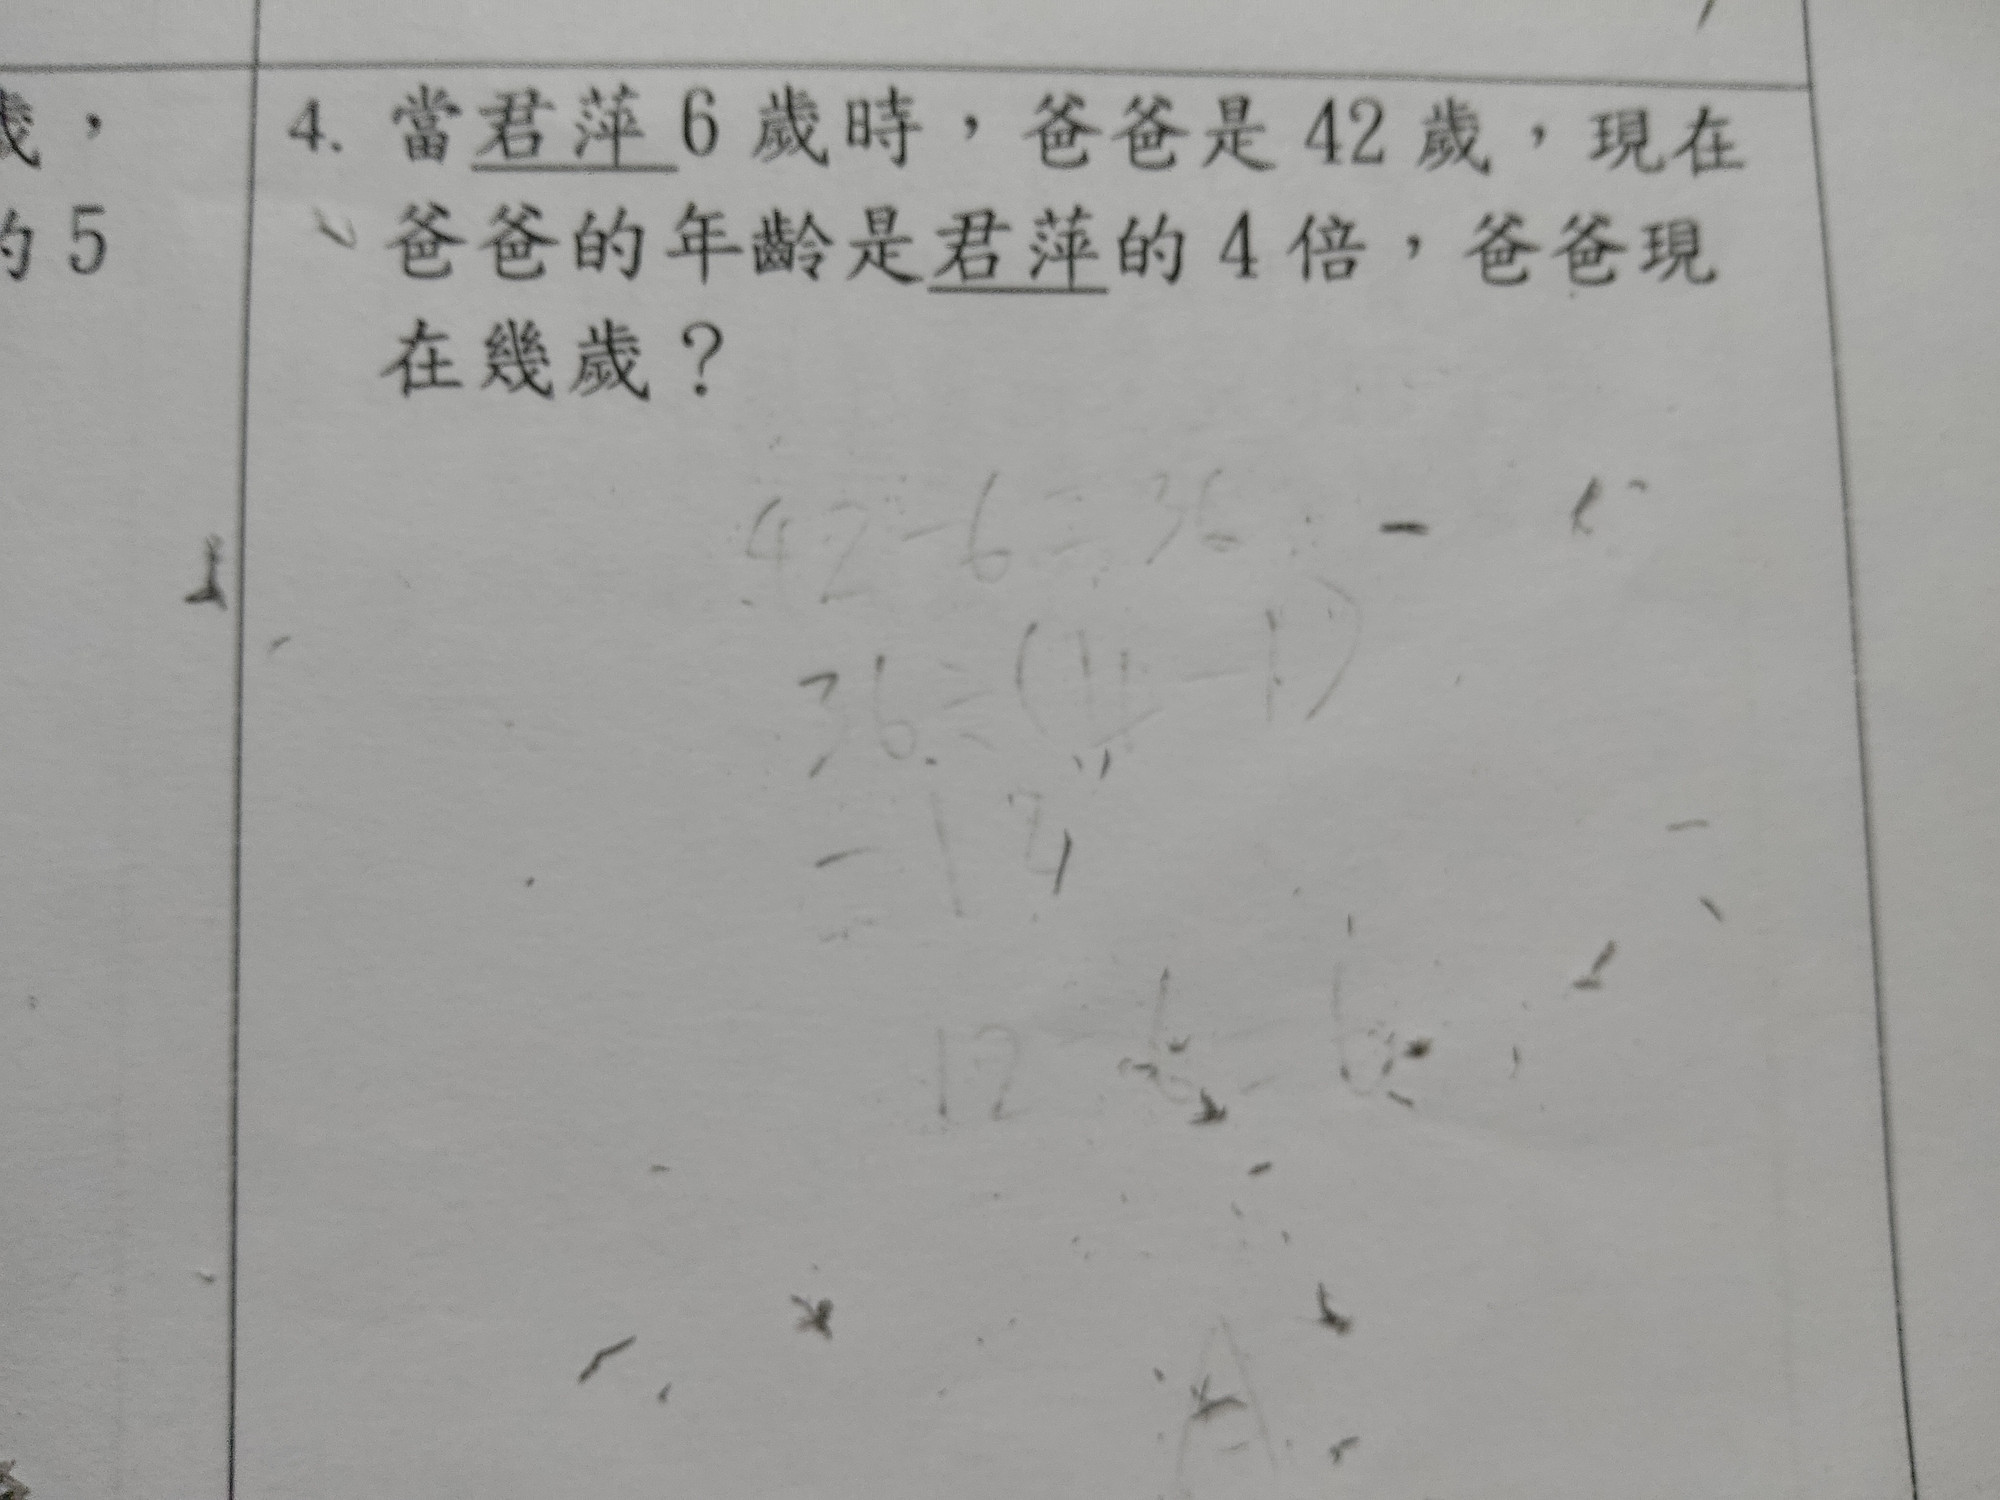 歲，
的5
4. 當君萍6歲時，爸爸是42歲，現在
爸爸的年齡是君萍的4倍，爸爸現
在幾歲？
42-6=36
36÷(4-1)
=12
12-6=6
A